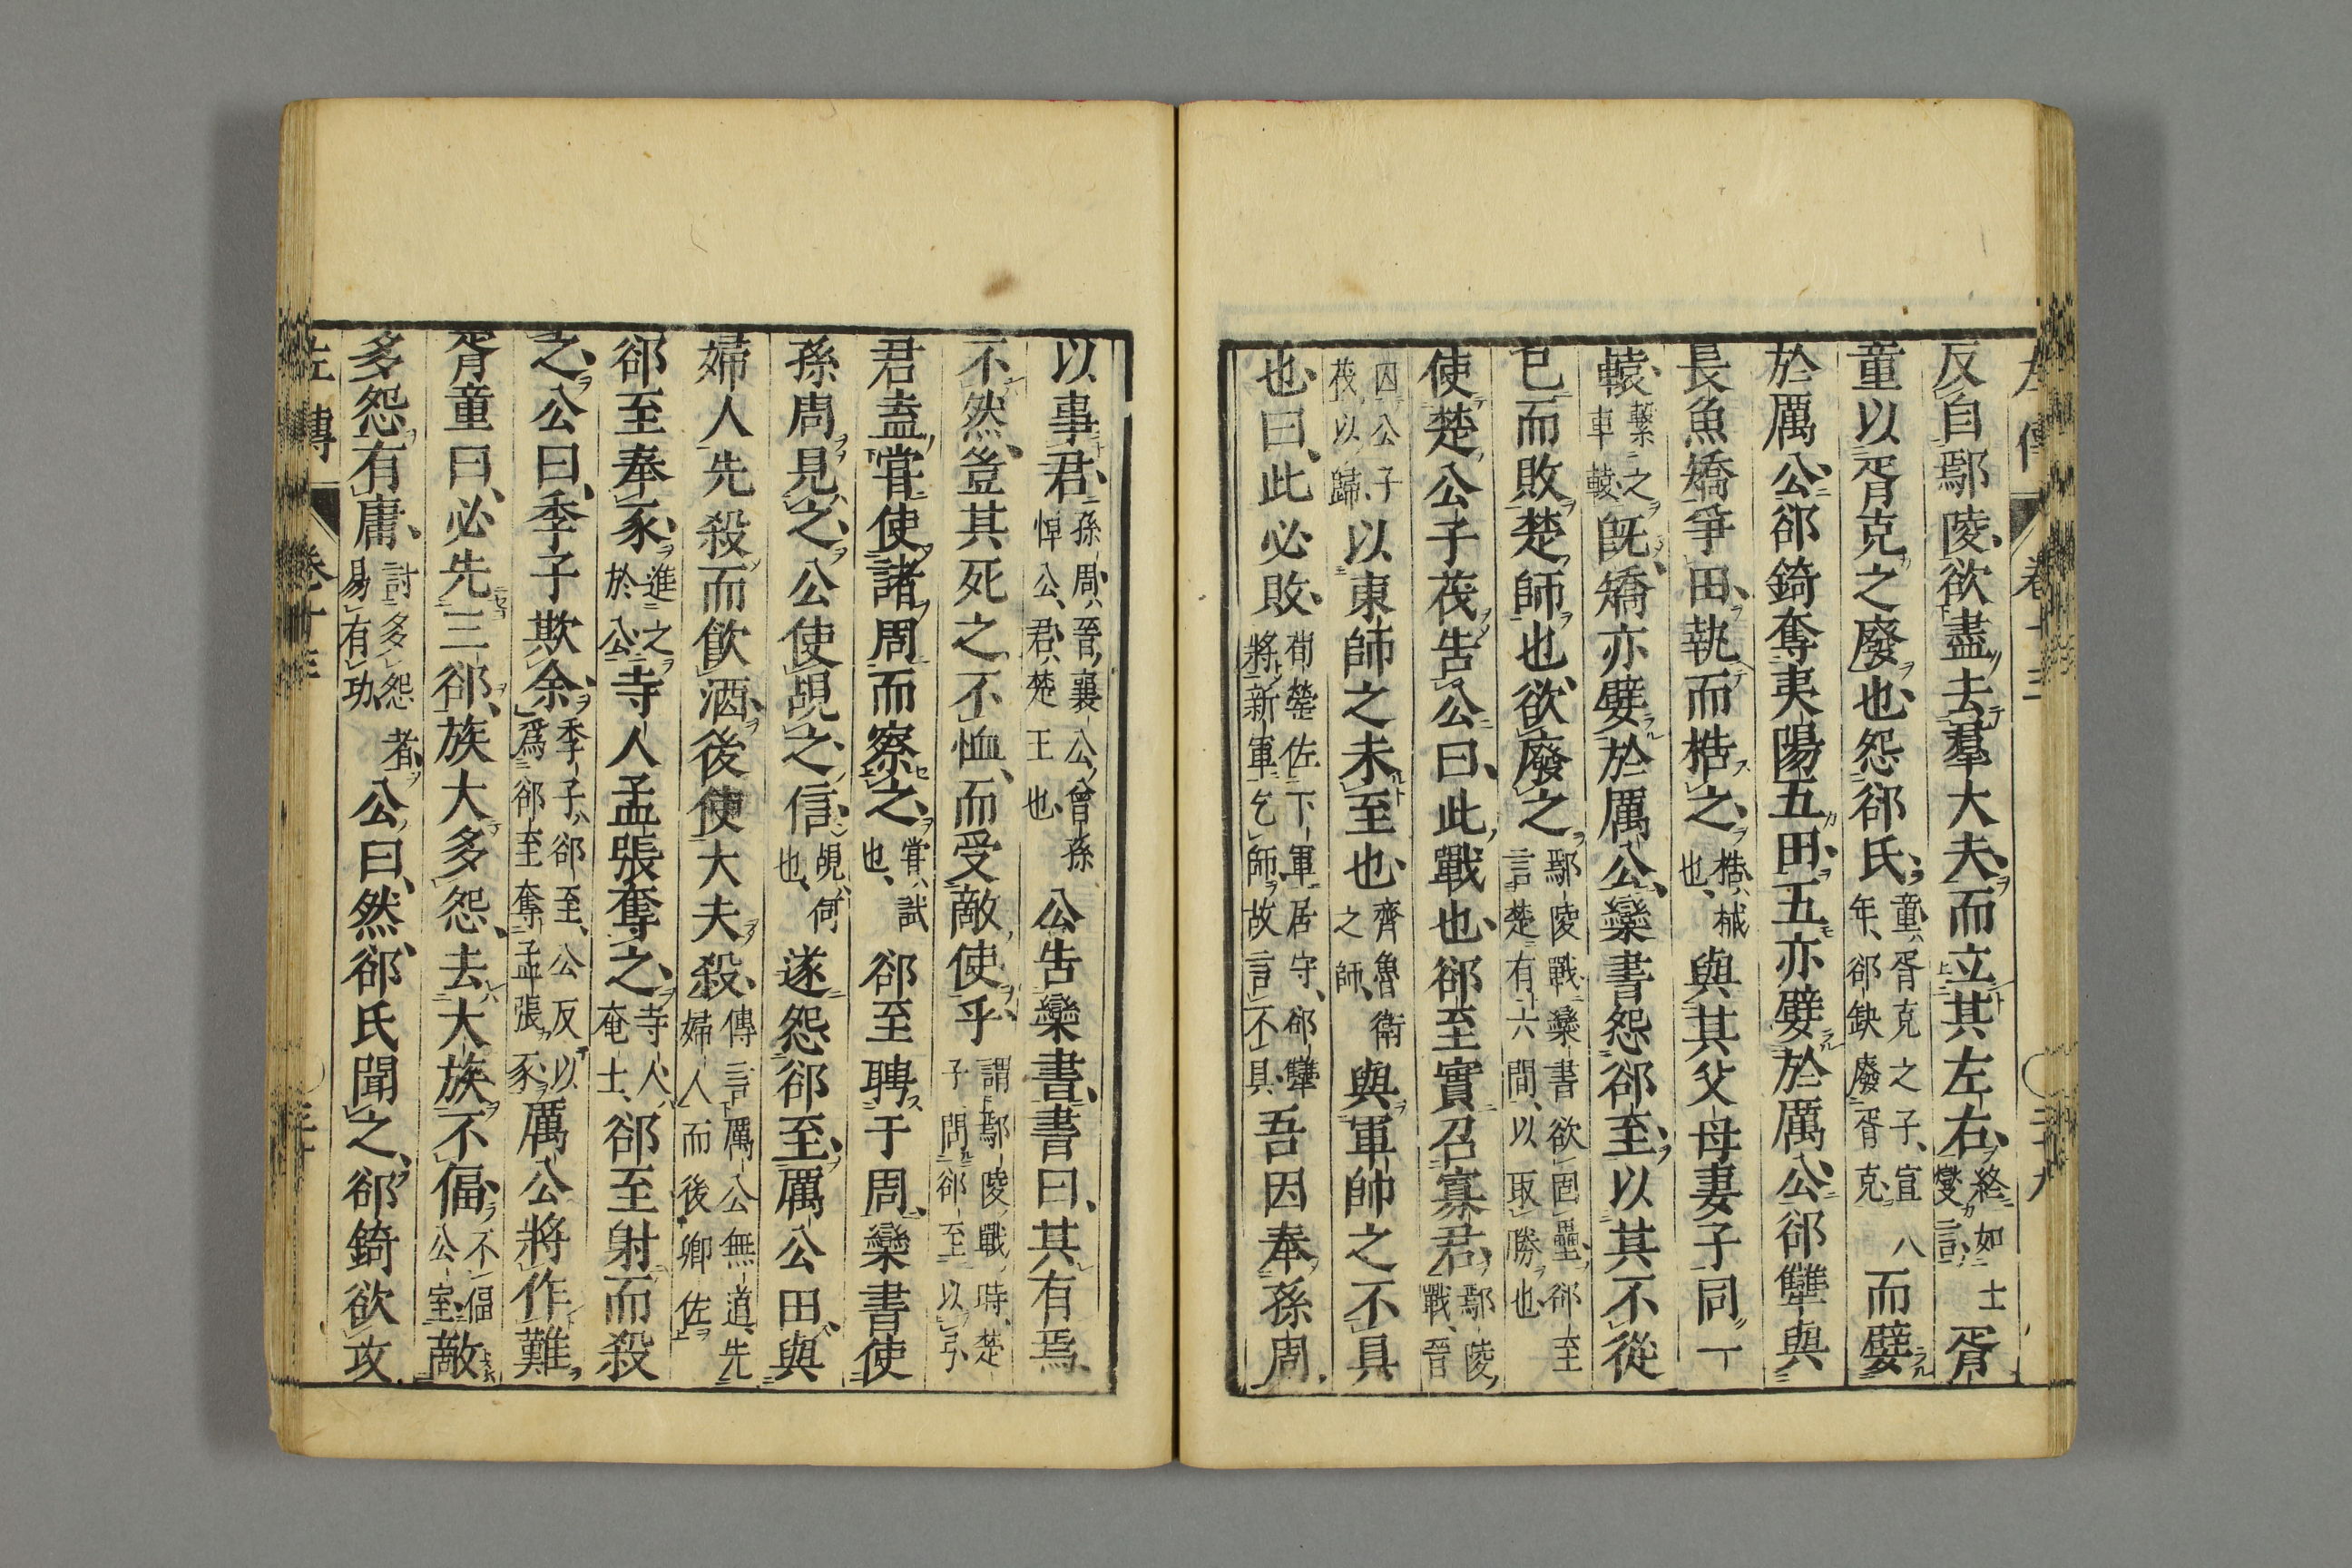 反自鄢陵欲盡去羣大夫而立其左右終如士燮言胥
童以胥克之廢也怨郤氏童胥克之子宣八年郤缺廢胥克而嬖
於厲公郤錡奪夷陽五田五亦嬖於厲公郤犨與
長魚矯爭田執而梏之梏械也與其父母妻子同一
轅繫之車轅既矯亦嬖於厲公欒書怨郤至以其不從
已而敗楚師也欲廢之鄢陵戰欒書欲固壘郤至言楚有六間以取勝也
使楚公子茷告公曰此戰也郤至實召寡君鄢陵戰晉
囚公子茷以歸以東師之未至也齊魯衛之師與軍帥之不具
也曰此必敗荀罃佐下軍居守郤犨將新軍乞師故言不具吾因奉孫周
以事君孫周晉襄公曾孫悼公君楚王也公告欒書書曰其有焉
不然豈其死之不恤而受敵使乎謂鄢陵戰時楚子問郤至以弓
君盍嘗使諸周而察之嘗試也郤至聘于周欒書使
孫周見之公使覘之信覘伺也遂怨郤至厲公田與
婦人先殺而飲酒後使大夫殺傳言厲公無道先婦人而後卿佐
郤至奉豕進之於公寺人孟張奪之寺人奄士郤至射而殺
之公曰季子欺余季子郤至公反以爲郤至奪孟張豕厲公將作難
胥童曰必先三郤族大多怨去大族不偪不偪公室敵
多怨有庸討多怨者易有功公曰然郤氏聞之郤錡欲攻
左傳 卷十三